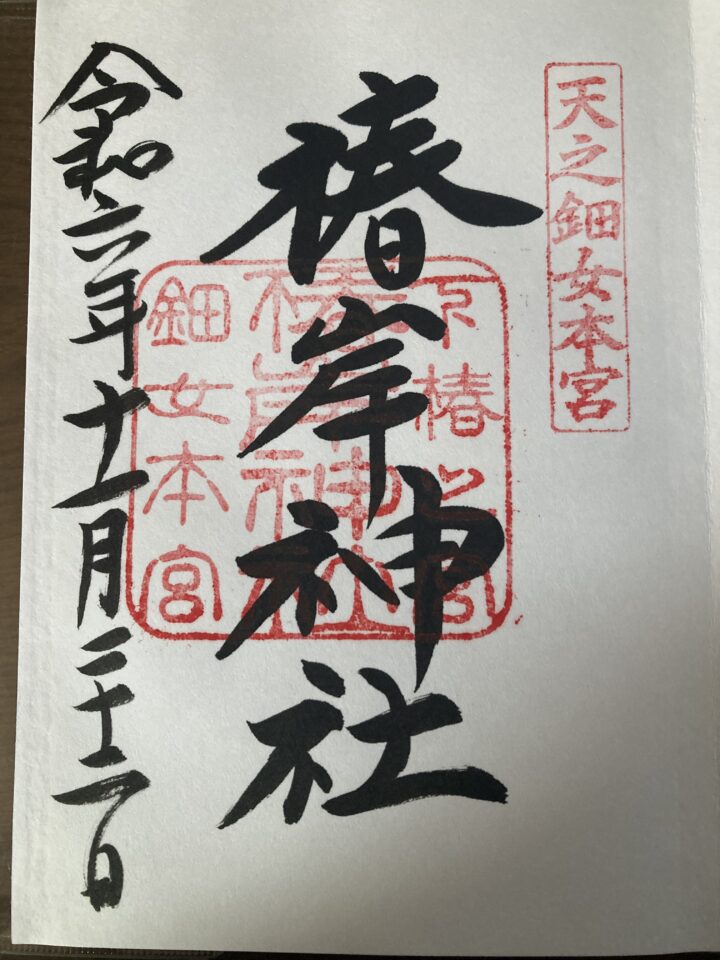 天之鈿女本宮
椿岸神社
下椿宮
椿岸神社
鈿女本宮
令和六年十一月二十二日